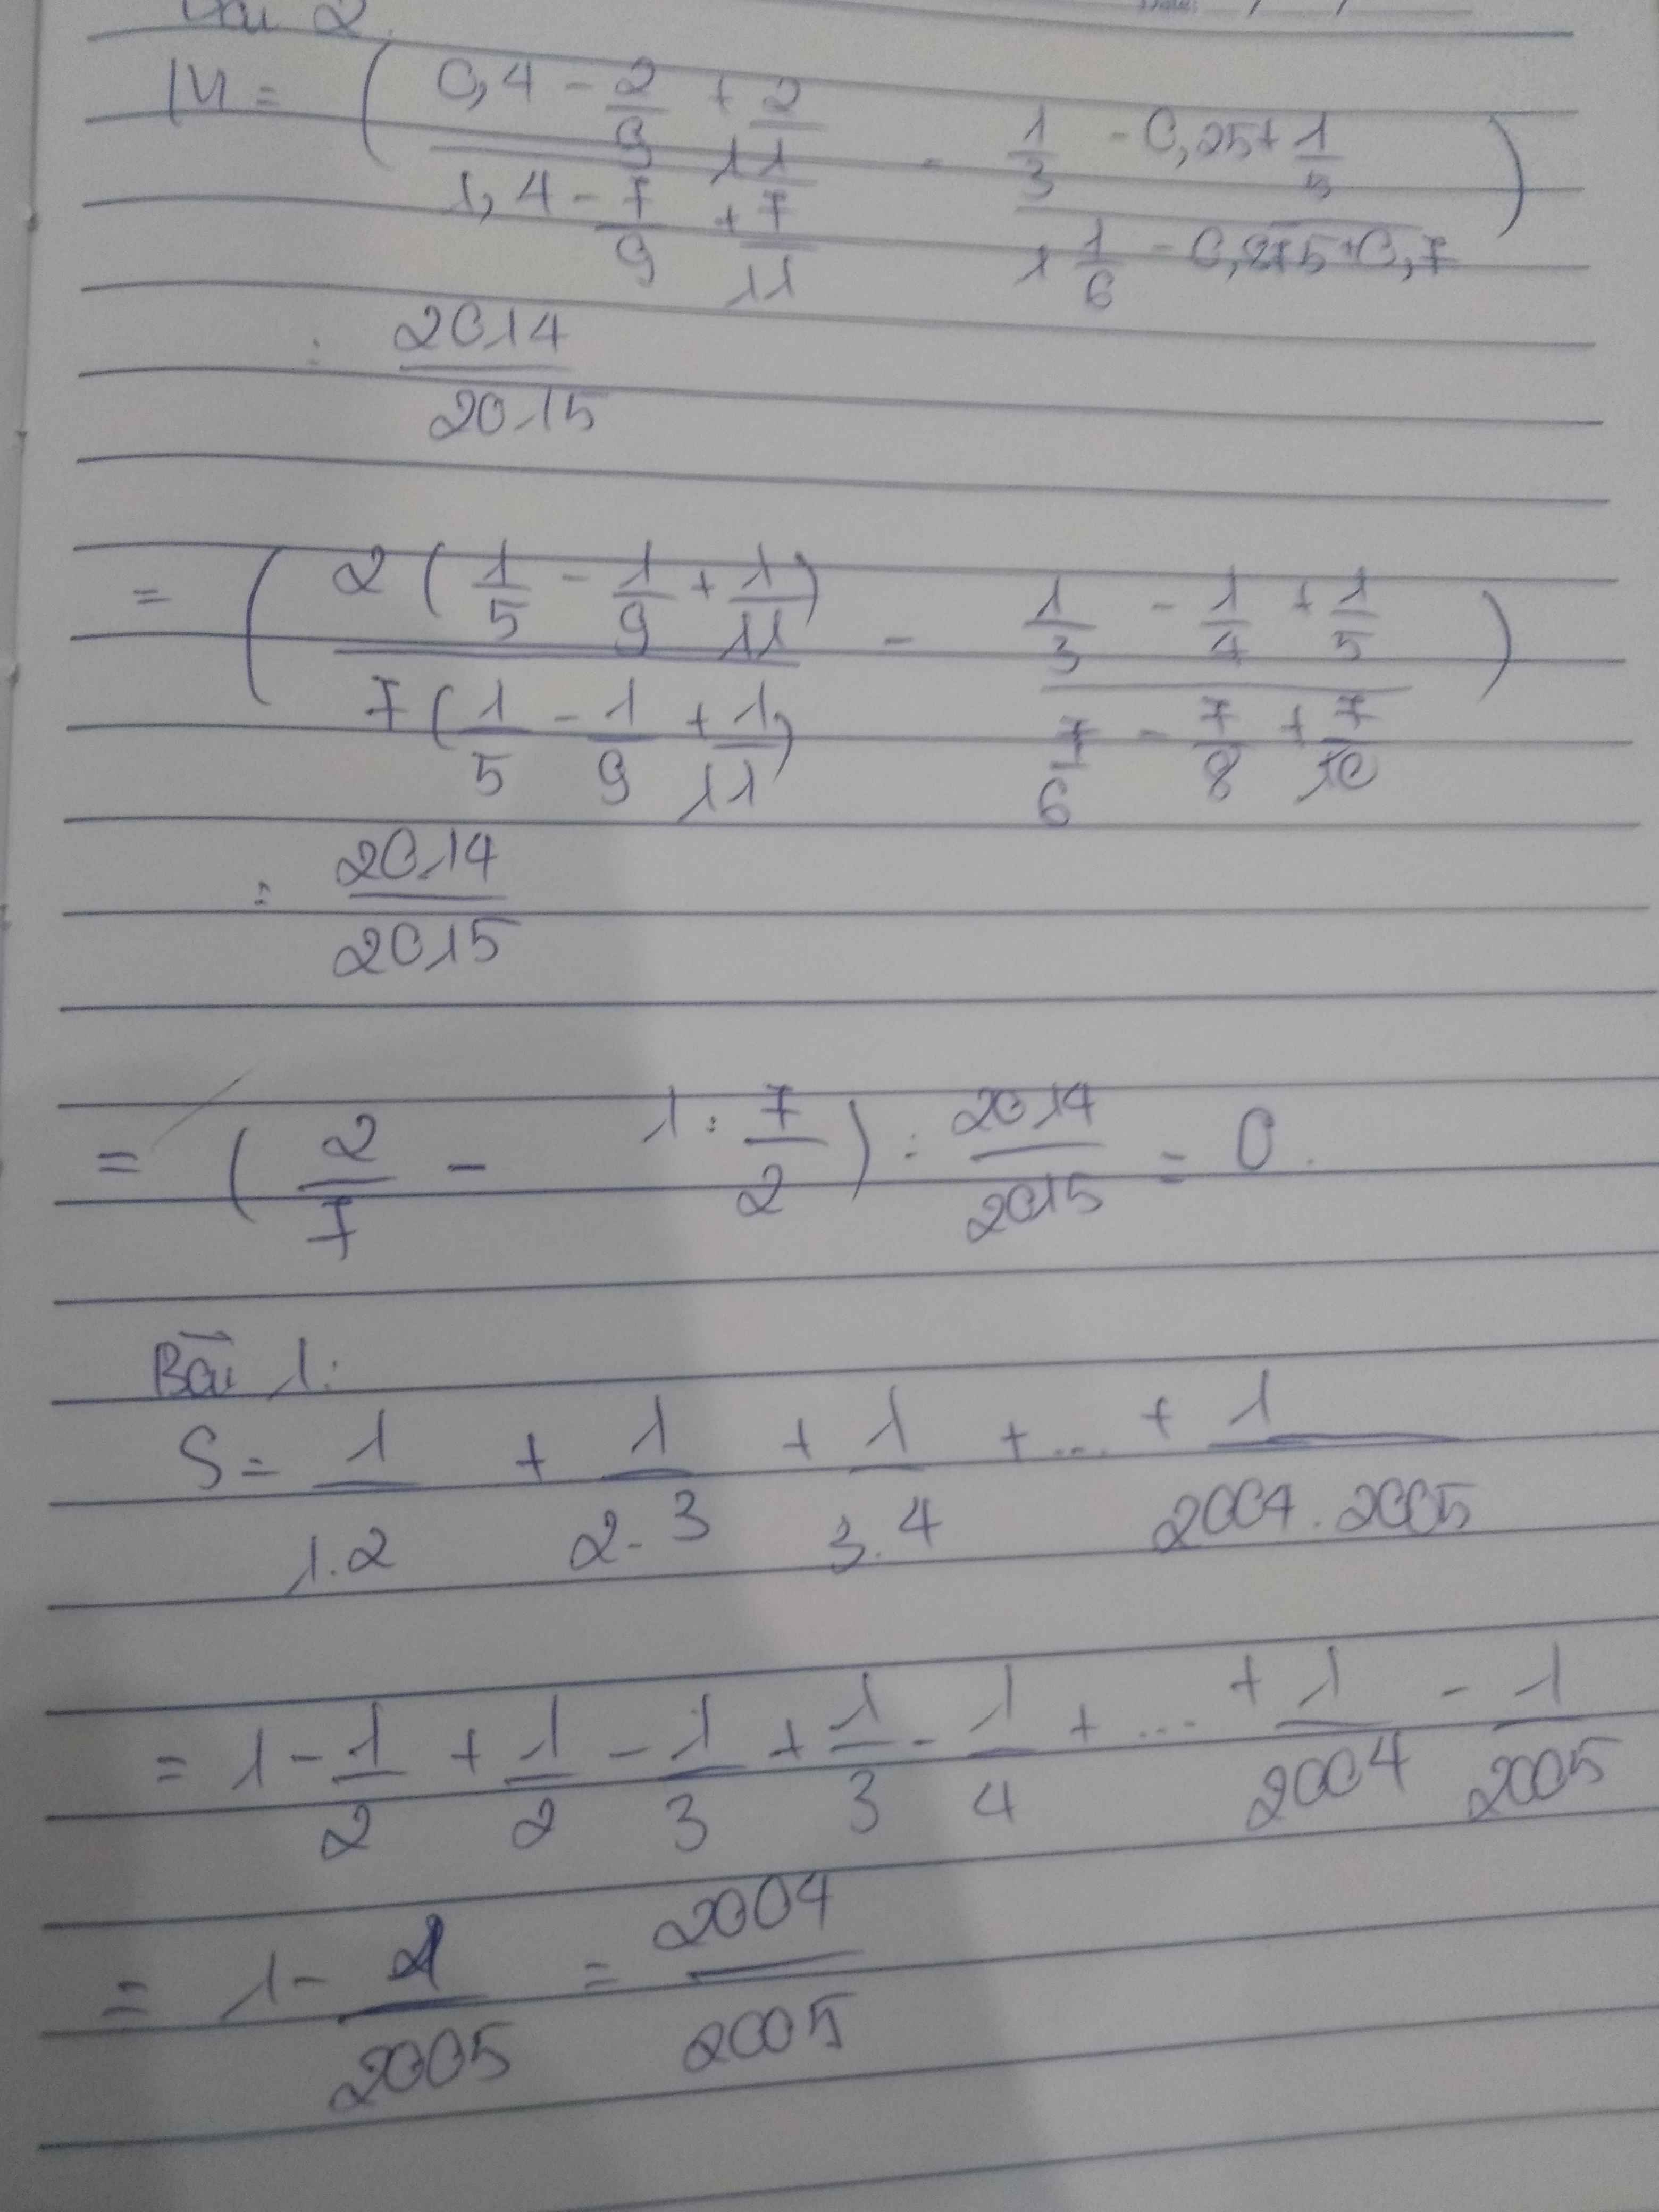 Bài 2.
M = ( (0,4 - 2/9 + 2/11)/(1,4 - 7/9 + 7/11) - (1/3 - 0,25 + 1/5)/(1 1/6 - 0,875 + 0,7) )
: 2014/2015
= ( 2(1/5 - 1/9 + 1/11)/7(1/5 - 1/9 + 1/11) - (1/3 - 1/4 + 1/5)/(7/6 - 7/8 + 7/10) )
: 2014/2015
= ( 2/7 - 1 : 7/2 ) : 2014/2015 = 0.
Bài 1:
S = 1/1.2 + 1/2.3 + 1/3.4 + ... + 1/2004.2005
= 1 - 1/2 + 1/2 - 1/3 + 1/3 - 1/4 + ... + 1/2004 - 1/2005
= 1 - 1/2005 = 2004/2005